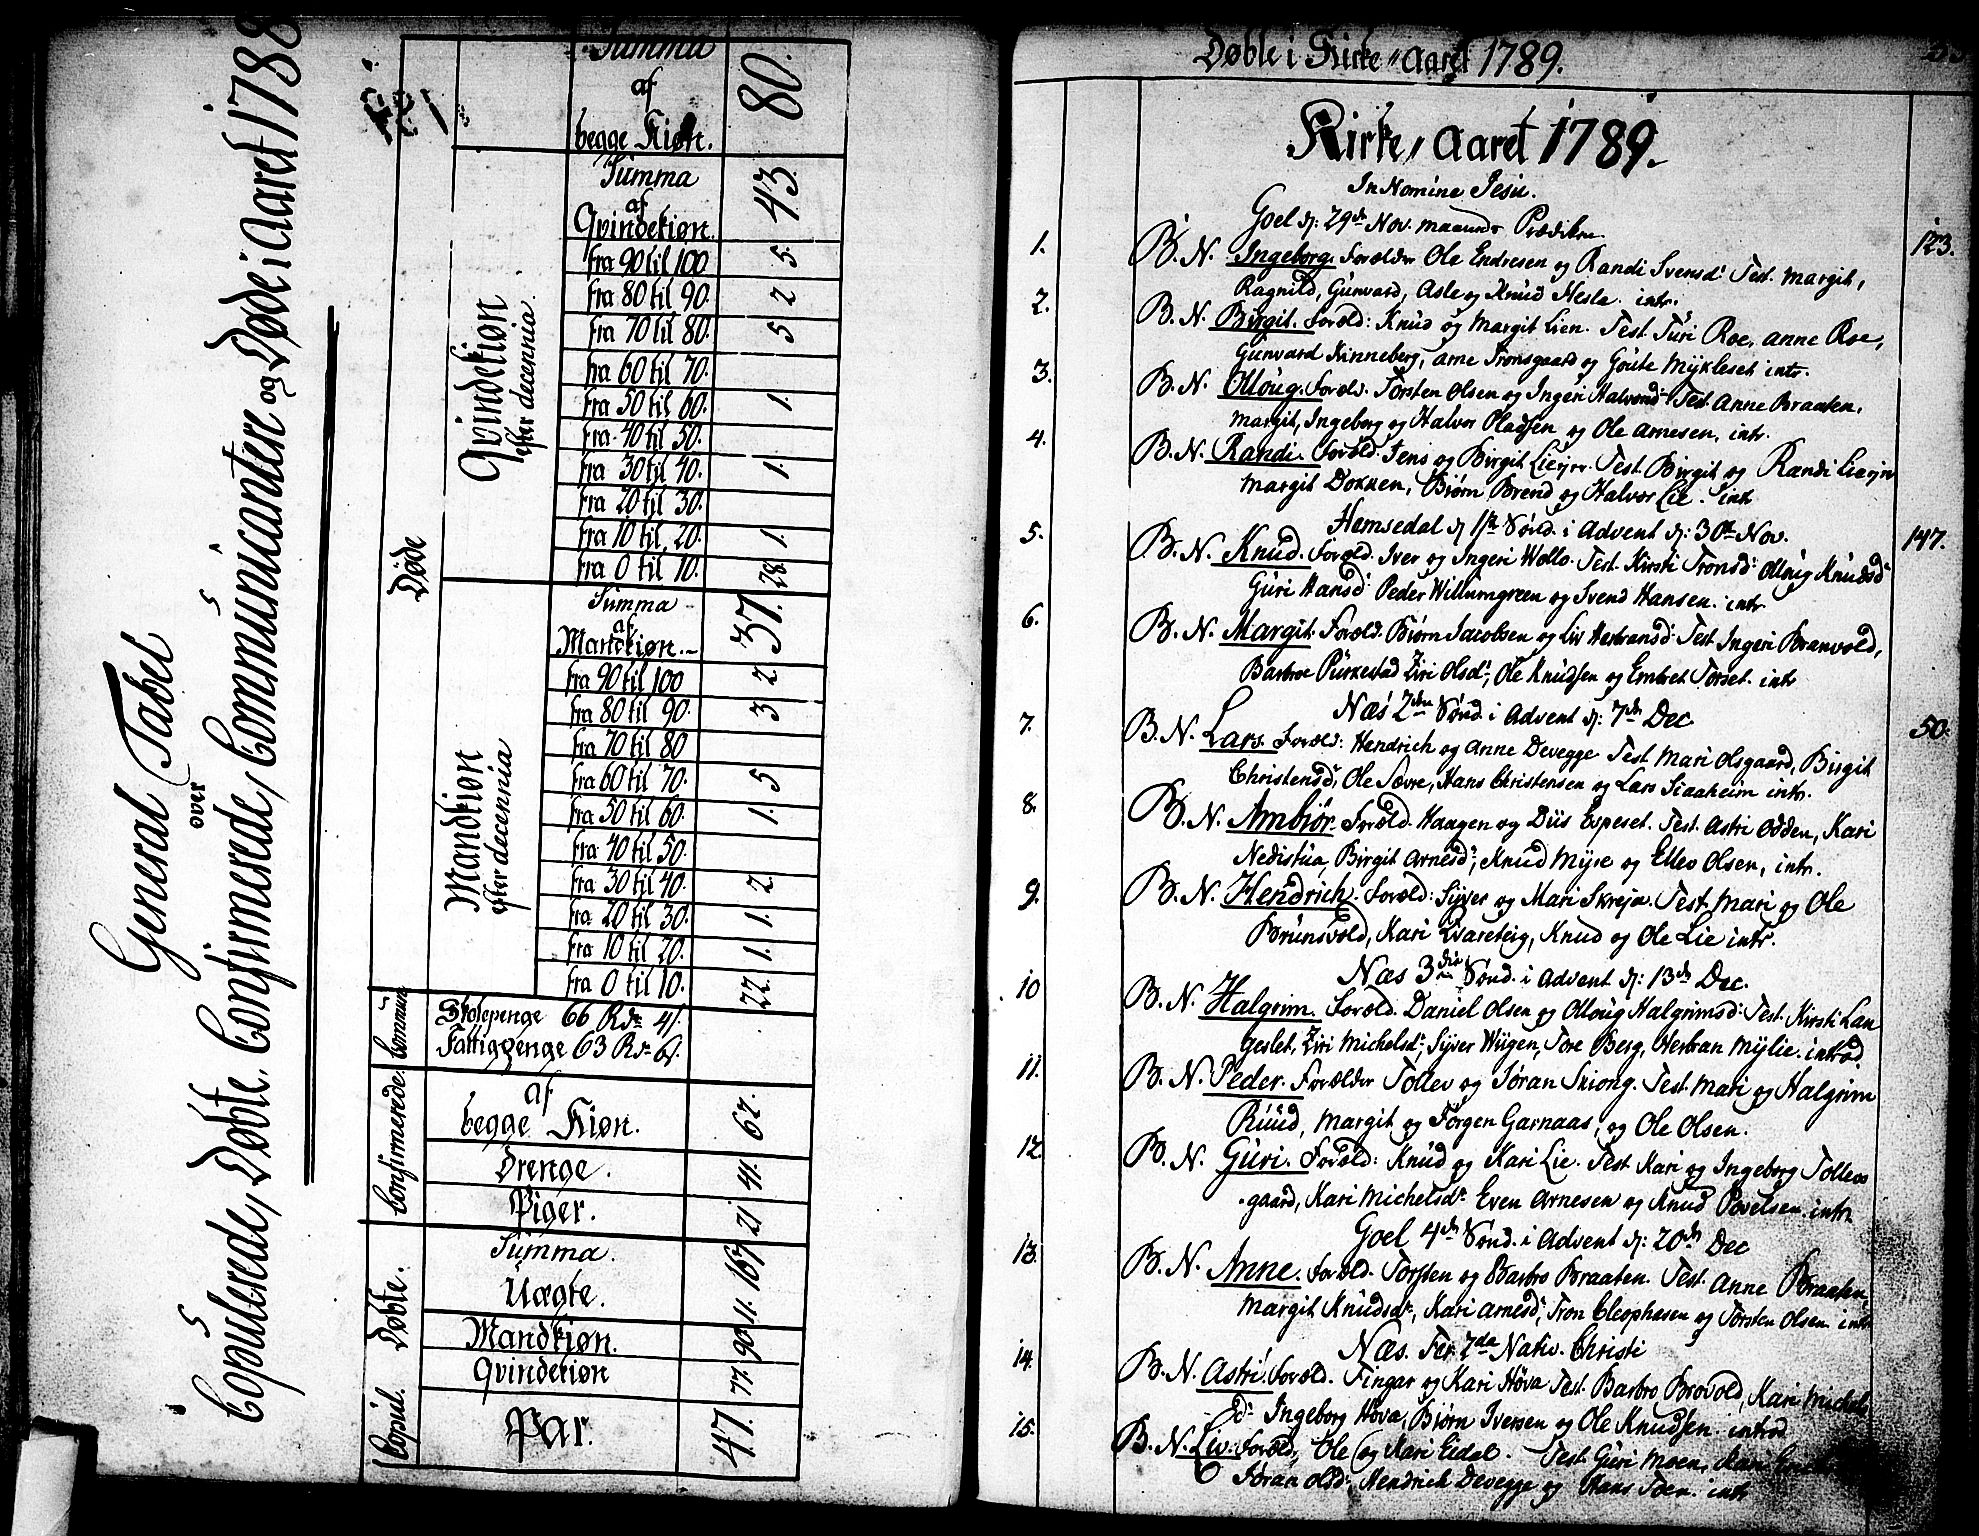 General Tabel
over
Copulerede, Døbte, Confirmerede, Communicantere og Døde i Aaret 1788
Copul.
Par. 47.
Døbte.
Qvindekiøn 77.
Mandkiøn. 90.
Uægte. 11.
Summa. 167.
Confirmerede.
Piger. 21
Drenge. 41.
af
begge Kiøn. 62.
Commun
Fattigpenge 63 Rdr 6 s.
Skolepenge 66 Rdr 4 s.
Døde
Mandkiøn
efter decennia
fra 0 til 10. 22.
fra 10 til 20. 1.
fra 20 til 30. 1.
fra 30 til 40. 2.
fra 40 til 50.
fra 50 til 60. 1.
fra 60 til 70. 5
fra 70 til 80
fra 80 til 90. 3
fra 90 til 100 2
Summa
af
Mandkiøn. 37.
Qvindekiøn
efter decennia
fra 0 til 10. 28.
fra 10 til 20. 1.
fra 20 til 30.
fra 30 til 40. 1.
fra 40 til 50.
fra 50 til 60. 1.
fra 60 til 70.
fra 70 til 80. 5
fra 80 til 90. 2
fra 90 til 100 5
Summa
af
Qvindekiøn. 43.
Summa
af
begge Kiøn. 80.
Døbte i Kirke-Aaret 1789.
Kirke-Aaret 1789.
In Nomine Jesu.
Goel d: 29de Nov. maaneds Prædiken
1. B. N. Ingeborg. Forælder Ole Endresen og Randi Svensd: Test. Margit, 123.
Ragnild, Gunvard, Asle og Knud Hesla. intr.
2. B. N. Birgit. Foræld: Knud og Margit Lien. Test. Turi Roe, Anne Roe,
Gunvard Kinneberg, Arne Tronsgaard og Goute Mykleset intr.
3. B. N. Olloug. Foræld. Torsten Olsen og Ingeri Halvorsd: Test. Anne Braaten,
Margit, Ingeborg og Halvor Oladsen og Ole Arnesen, intr.
4. B. N. Randi. Foræld. Jens og Birgit Liejer. Test. Birgit og Randi Liejer
Margit Dokken, Biørn Brend og Halvor Lie. intr
Hemsedal d. 1ste Sönd. i Advent d: 30te Nov.
5. B. N. Knud. Foræld. Iver og Ingeri Wøllo. Test. Kirsti Tronsd: Olloug Knudsd: 147.
Guri Hansd: Peder Willumgreen og Svend Hansen. intr
6. B. N. Margit. Foræld. Biørn Jacobsen og Liv Herbransd: Test. Ingeri Branvold,
Barbroe Purkestad Ziri Olsd:, Ole Knudsen og Embret Torset. intr
Næs 2den Sönd. i Advent d: 7de Dec
7. B. N. Lars. Foræld: Hendrich og Anne Devegge Test. Mari Olsgaard, Birgit 50.
Christensd:, Ole Sævre, Hans Christensen og Lars Siaaheim intr.
8. B. N. Ambiör. Foræld. Haagen og Diis Espeset. Test. Astri Odden, Kari
Nedistua, Birgit Arnesd:, Knud Myre og Ellev Olsen, intr.
9. B. N. Hendrich. Foræld: Syver og Mari Skreja. Test. Mari og Ole
Brunsvold, Kari Qvareteig, Knud og Ole Lie intr.
Næs 3die Sönd. i Advent d: 13de Dec.
10 B. N. Halgrim. Foræld. Daniel Olsen og Olloug Halgrimsd: Test. Kirsti Lan
geslet, Ziri Michelsd:, Syver Wiigen, Tore Berg, Herbran Mylie. introd
11. B. N. Peder. Forælder Tollev og Jöran Skiong. Test. Mari og Halgrim
Ruud, Margit og Jörgen Garnaas, og Ole Olsen.
12. B. N. Guri. Foræld: Knud og Kari Lie. Test. Kari og Ingeborg Tollevs
gaard, Kari Michelsd: Even Arnesen og Knud Povelsen. intr.
Goel 4de Sönd. i Advent d: 20de Dec
13. B. N. Anne. Foræld. Torsten og Barbro Braaten. Test. Anne Braaten,
Margit Knudsd:, Kari Arnesd:, Tron Cleophasen og Torsten Olsen. intr
Næs. Fer. 2da Nativ. Christi
14. B. N. Astri. Foræld. Fingar og Kari Höva Test. Barbro Brovold, Kari Michels
d: Ingeborg Höva, Biörn Iversen og Ole Knudsen. introd
15. B. N. Liv. Foræld, Ole og Kari Eidal. Test. Guri Moen, Kari
Jöran Olsd:, Hendrich Devegge og Hans Toen. intr